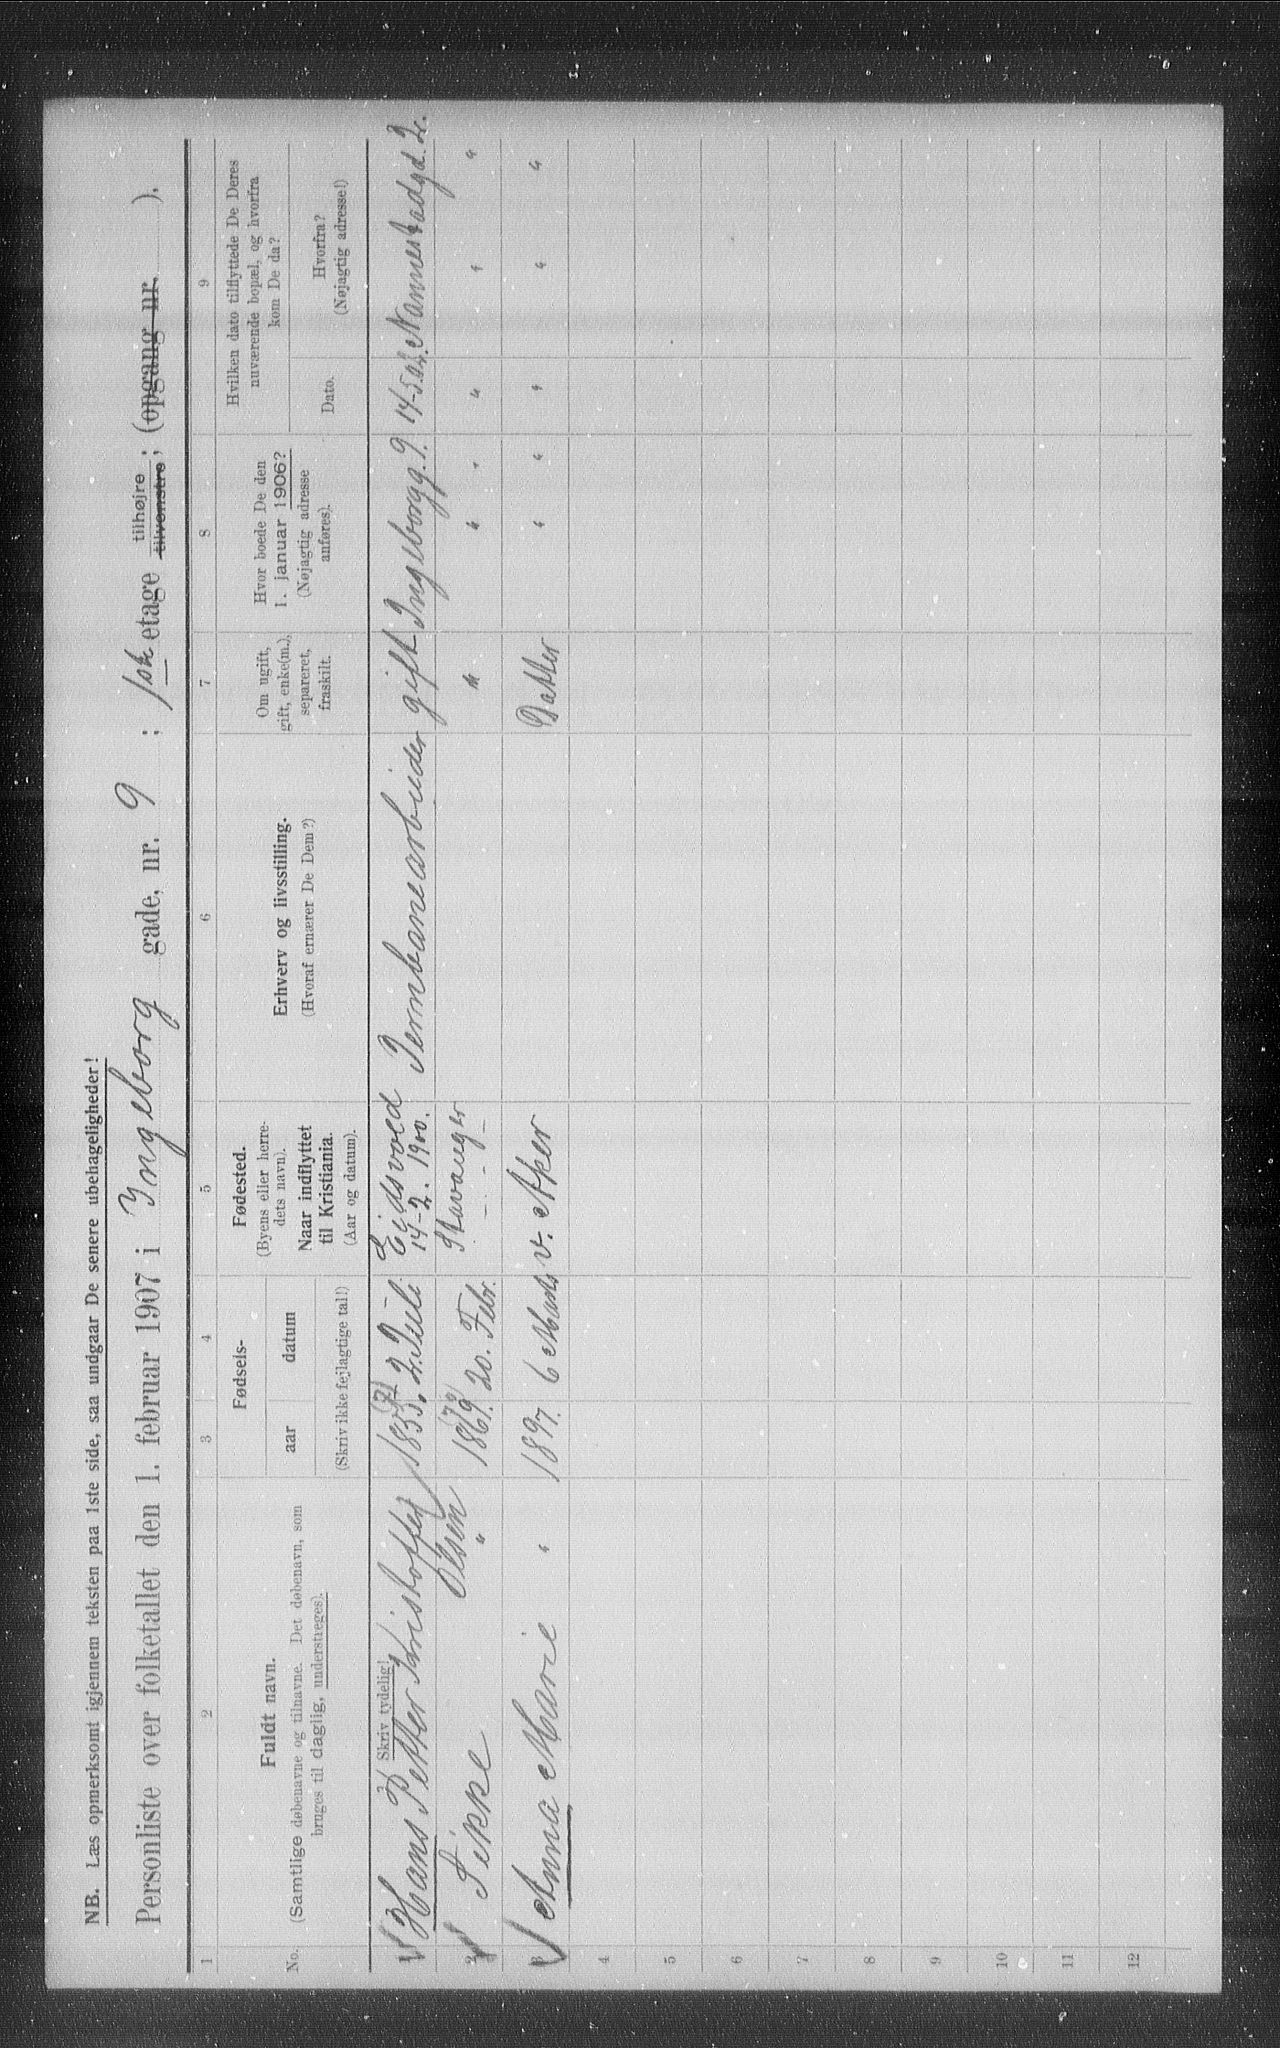 NB. Læs opmerksomt igjennem teksten paa 1ste side, saa undgaar De senere ubehageligheder!
Personliste over folketallet den 1. februar 1907 i Ingeborg gade, nr. 9 ; 1ste etage tilhøjre tilvenstre; (opgang nr. ).
1 2 3 4 5 6 7 8 9
No.
Fuldt navn.
(Samtlige døbenavne og tilnavne. Det døbenavn, som
bruges til daglig, understreges).
Skriv tydelig!
Fødsels-
aar datum
(Skriv ikke fejlagtige tal!)
Fødested.
(Byens eller herre-
dets navn).
Naar indflyttet
til Kristiania.
(Aar og datum).
Erhverv og livsstilling.
(Hvoraf ernærer De Dem?)
Om ugift,
gift, enke(m.),
separeret,
fraskilt.
Hvor boede De den
1. januar 1906?
(Nøjagtig adresse
anføres).
Hvilken dato tilflyttede De Deres
nuværende bopæl, og hvorfra
kom De da?
Dato.
Hvorfra?
(Nøjagtig adresse!)
1 Hans Petter Kristoffer Olsen 1855. 2. Juli Eidsvold 14-2. 1900. Jernbanearbeider gift Ingeborgg. 9. 14-5.04. Nannestadgd. 2.
2 Sikke " 1869. 20. Febr. Stavanger - - - " " " " " "
3 Anna Marie " 1897. 6 Marts v. Aker Datter " " " " "
4
5
6
7
8
9
10
11
12